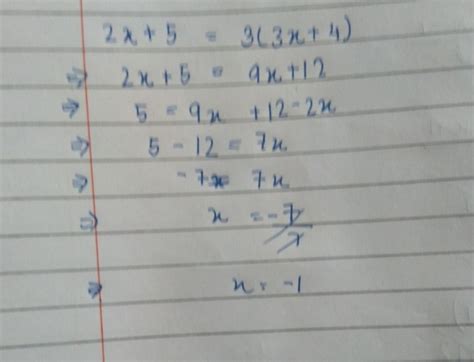 2x + 5 = 3(3x + 4)
⇒ 2x + 5 = 9x + 12
⇒ 5 = 9x + 12 - 2x
⇒ 5 - 12 = 7x
⇒ -7 = 7x
⇒ x = -7/7
⇒ x = -1